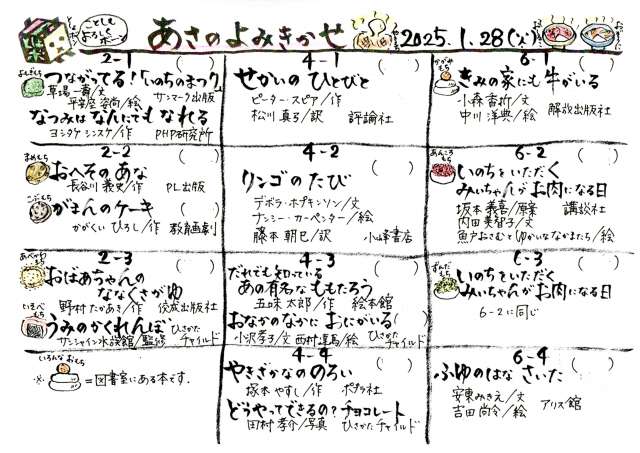 ことしも
よろしく
ポーン
あさのよみきかせ
2025.1.28(火)
2-1
つながってる!「いのちのまつり」
草場一壽/文
平安座資尚/絵 サンマーク出版
なつみはなんにでもなれる
ヨシタケシンスケ/作 PHP研究所
2-2
まめもち
おへそのあな
長谷川義史/作 PL出版
こぶもち
がまんのケーキ
かがくいひろし/作 教育画劇
2-3
おばあちゃんの
ななくさがゆ
野村たかあき/作 佼成出版社
いそべもち
うみのかくれんぼ
サンシャイン水族館/監修 ひさかたチャイルド
いろんなおもち
※ =図書室にある本です。
4-1
せかいのひとびと
ピーター・スピア/作
松川真弓/訳 評論社
4-2
リンゴのたび
デボラ・ホプキンソン/文
ナンシー・カーペンター/絵
藤本朝巳/訳 小峰書店
4-3
だれでも知っている
あの有名なももたろう
五味太郎/作 絵本館
おなかのなかにおにがいる
小沢孝子/文 西村達馬/絵 ひさかたチャイルド
4-4
やきざかなののろい
塚本やすし/作 ポプラ社
どうやってできるの?チョコレート
田村孝介/写真 ひさかたチャイルド
6-1
きみの家にも牛がいる
小森香折/文
中川洋典/絵 解放出版社
6-2
あんころもち
いのちをいただく
みいちゃんがお肉になる日
坂本義喜/原案 講談社
内田美智子/文
魚戸おさむとゆかいななかまたち/絵
6-3
ずんだもち
いのちをいただく
みいちゃんがお肉になる日
6-2に同じ
6-4
ふゆのはなさいた
安東みきえ/文
吉田尚令/絵 アリス館